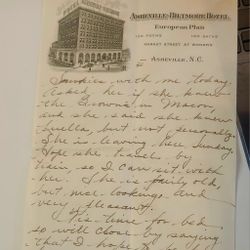 ASHEVILLE-BILTMORE HOTEL
European Plan
100 ROOMS 100 BATHS
MARKET STREET AT WOODFIN
ASHEVILLE, N.C.
with me today.
Asked her if she knew
the Browns in Macon,
and she said she knew
Luella, but not personally.
She is leaving here Sunday
Hope she travels by
train, so I can sit with
her. She is fairly old,
but nice looking and
very pleasant.
It's time for bed
so will close by saying
that I hope